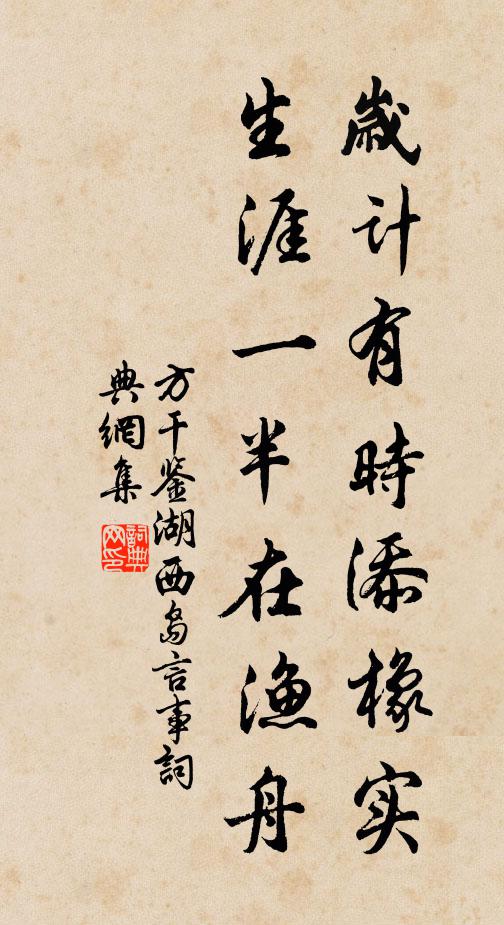 歲计有時添橡实
生涯一半在漁舟
方干鉴湖西岛言事詞
典網集
詞典網印